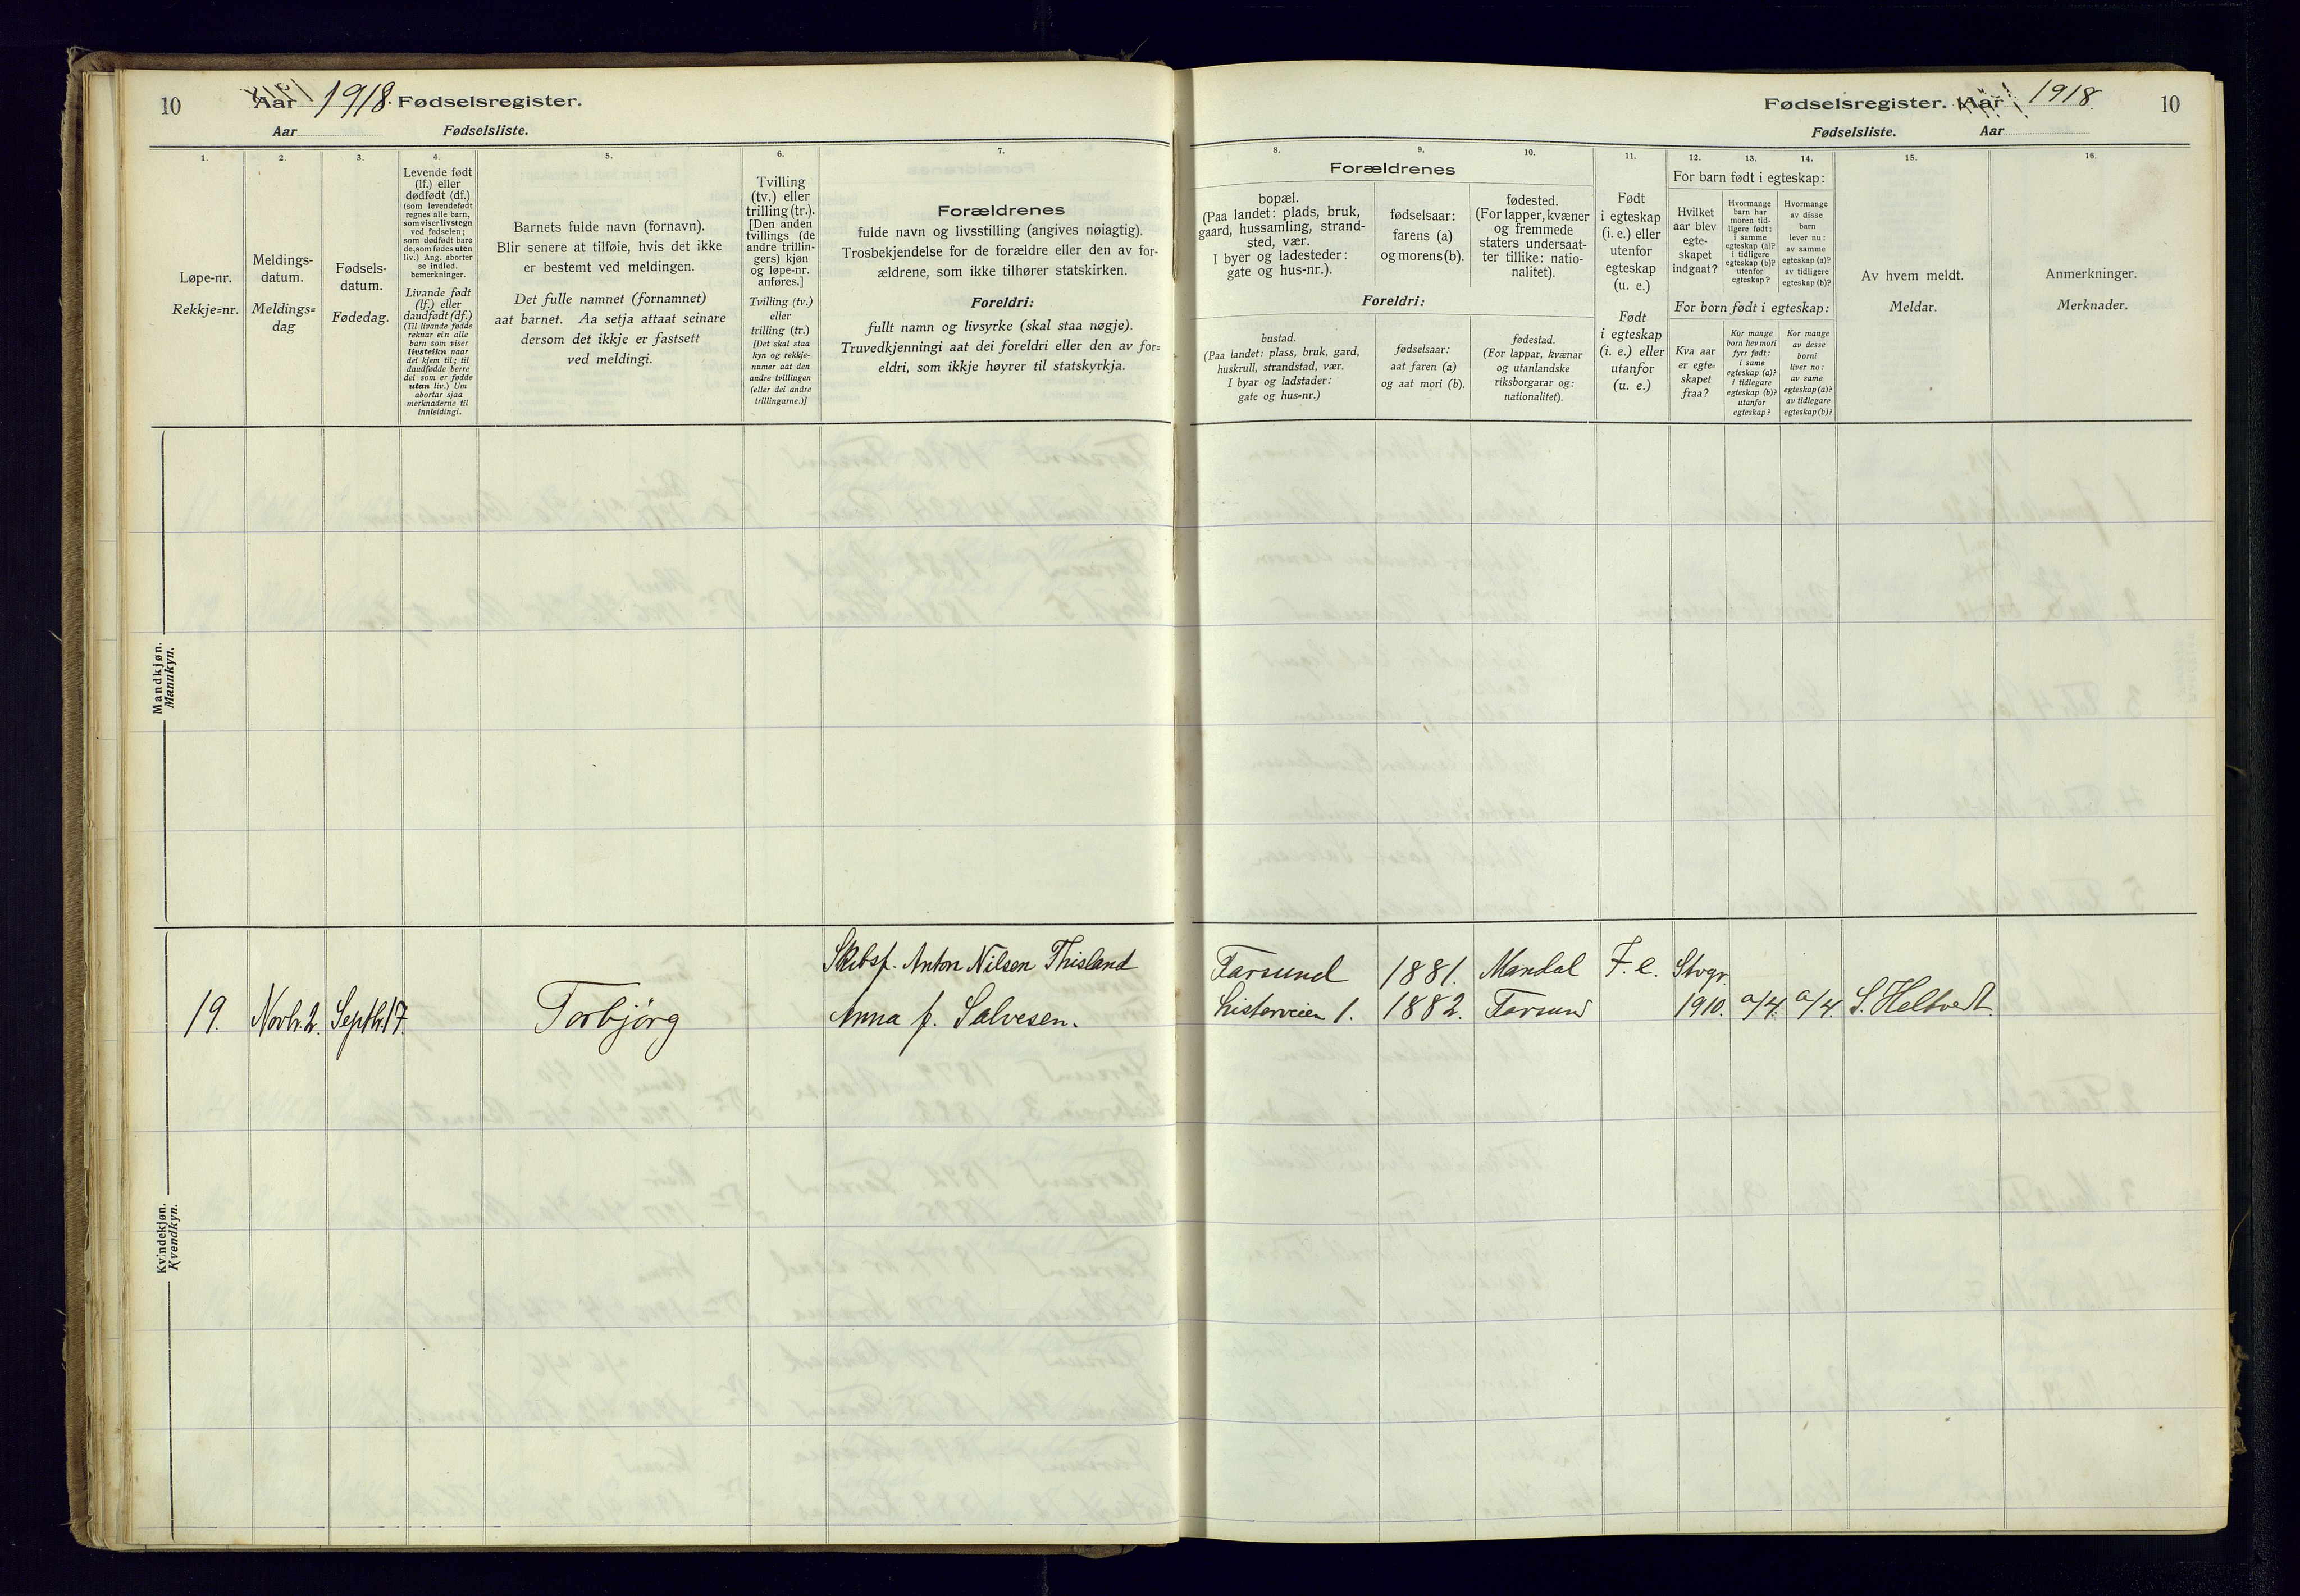 10 Aar 1918. Fødselsregister.
Aar Fødselsliste.
1.
Løpe-nr.
Rekkje-nr.
2.
Meldings-
datum.
Meldings-
dag
3.
Fødsels-
datum.
Fødedag.
4.
Levende født
(lf.) eller
dødfødt (df.)
(som levendefødt
regnes alle barn,
som viser livstegn
ved fødselen;
som dødfødt bare
de, som fødes uten
liv.) Ang. aborter
se indled.
bemerkninger.
Livande født
(lf.) eller
daudfødt (df.)
(Til livande fødde
reknar ein alle
barn som viser
livsteikn naar
dei kjem til; til
daudfødde berre
dei som er fødde
utan liv.) Um
abortar sjaa
merknaderne til
innleidingi.
5.
Barnets fulde navn (fornavn).
Blir senere at tilføie, hvis det ikke
er bestemt ved meldingen.
Det fulle namnet (fornamnet)
aat barnet. Aa setja attaat seinare
dersom det ikkje er fastsett
ved meldingi.
6.
Tvilling
(tv.) eller
trilling (tr.).
[Den anden
tvillings (de
andre trillin-
gers) kjøn
og løpe-nr.
anføres.]
Tvilling (tv.)
eller
trilling (tr.)
[Det skal staa
kyn og rekkje-
numer aat den
andre tvillingen
(eller dei andre
trillingarne.)]
7.
Forældrenes
fulde navn og livsstilling (angives nøiagtig).
Trosbekjendelse for de forældre eller den av for-
ældrene, som ikke tilhører statskirken.
Foreldri:
fullt namn og livsyrke (skal staa nøgje).
Truvedkjenningi aat dei foreldri eller den av for-
eldri, som ikkje høyrer til statskyrkja.
Mandkjøn.
Mannkyn.
Skibsf. Anton Nilsen Thisland
19. Novbr. 2. Septbr. 17 Torbjörg Anna f. Salvesen.
Kvindekjøn.
Kvendkyn.
Fødselsregister. Aar 1918. 10
Fødselsliste. Aar
8. 9. 10.
Forældrenes
bopæl.
(Paa landet: plads, bruk,
gaard, hussamling, strand-
sted, vær.
I byer og ladesteder:
gate og hus-nr.).
fødselsaar:
farens (a)
og morens (b).
fødested.
(For lapper, kvæner
og fremmede
staters undersaat-
ter tillike: natio-
nalitet).
Foreldri:
bustad.
(Paa landet: plass, bruk, gard,
huskrull, strandstad, vær.
I byar og ladstader:
gate og hus-nr.)
fødselsaar:
aat faren (a)
og aat mori (b).
fødestad.
(For lappar, kvænar
og utanlandske
riksborgarar og:
nationalitet).
11.
Født
i egteskap
(i. e.) eller
utenfor
egteskap
(u. e.)
Født
i egteskap
(i. e.) eller
utanfor
(u. e.)
12. 13. 14.
For barn født i egteskap:
Hvilket
aar blev
egte-
skapet
indgaat?
Hvormange
barn har
moren tid-
ligere født:
i samme
egteskap (a)?
i tidligere
egteskap (b)?
utenfor
egteskap?
Hvormange
av disse
barn
lever nu:
av samme
egteskap (a)?
av tidligere
egteskap (b)?
For born født i egteskap:
Kva aar
er egte-
skapet
fraa?
Kor mange
born hev mori
fyrr født:
i same
egteskap (a)?
i tidlegare
egteskap (b)?
utanfor
egteskap?
Kor mange
av desse
borni
liver no:
av same
egteskap (a)?
av tidlegare
egteskap (b)?
15.
Av hvem meldt.
Meldar.
16.
Anmerkninger.
Merknader.
Farsund 1881. Mandal F. e. Stvgr.
Listerveien 1. 1882. Farsund 1910. a/4. a/4. S. Heltvedt.